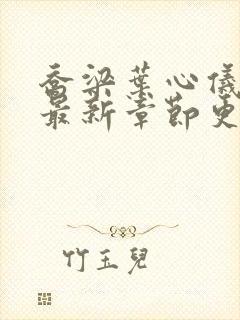 乔梁葉心儀
最新章節更
竹玉兒